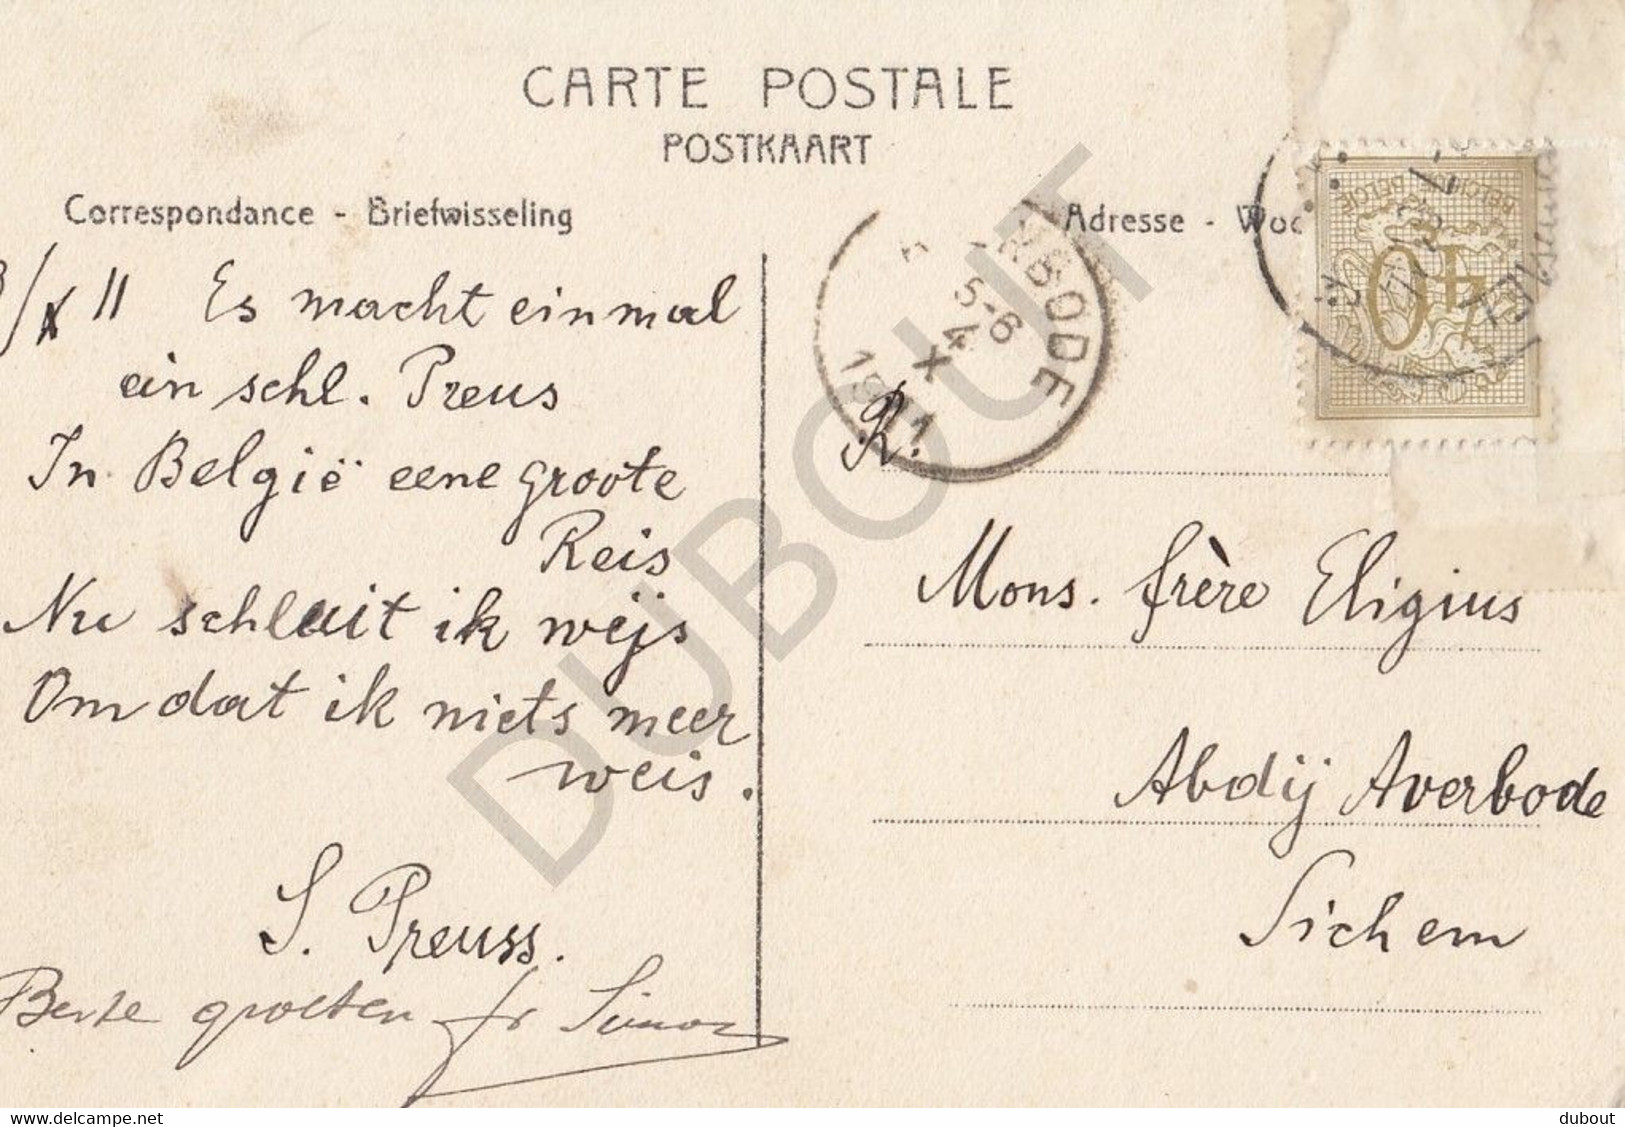 CARTE POSTALE
POSTKAART
Correspondance - Briefwisseling
Adresse - Woo
3/X 11 Es macht einmal
ein schl. Preus
In België eene groote
Reis
Nu schluit ik weijs
Om dat ik niets meer
weis.
S. Preuss.
Beste groeten fr Simon
R.
Mons. frère Eligius
Abdij Averbode
Sichem
RBODE
5-6
4
X
BELGIE BELGIQUE
40
DUBOUT
delcampe.net
dubout